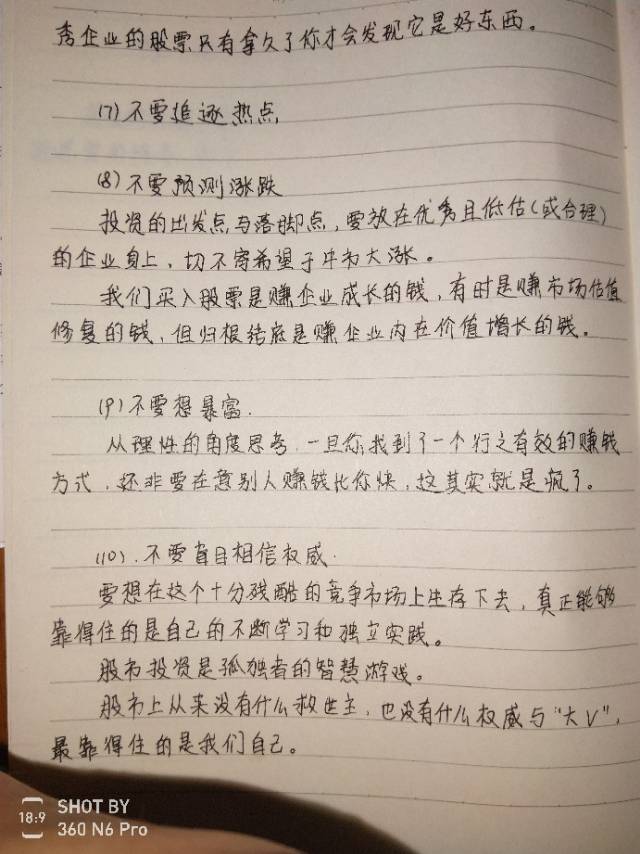 秀企业的股票只有拿久了你才会发现它是好东西。
(7)不要追逐热点
(8)不要预测涨跌
投资的出发点与落脚点，要放在优秀且低估(或合理)
的企业身上，切不寄希望于牛市大涨。
我们买入股票是赚企业成长的钱，有时是赚市场估值
修复的钱，但归根结底是赚企业内在价值增长的钱。
(9)不要想暴富.
从理性的角度思考，一旦你找到了一个行之有效的赚钱
方式，还非要在意别人赚钱比你快，这其实就是疯了。
(10).不要盲目相信权威.
要想在这个十分残酷的竞争市场上生存下去，真正能够
靠得住的是自己的不断学习和独立实践。
股市投资是孤独者的智慧游戏。
股市上从来没有什么救世主，也没有什么权威与“大V”，
最靠得住的是我们自己。
18:9 SHOT BY
360 N6 Pro